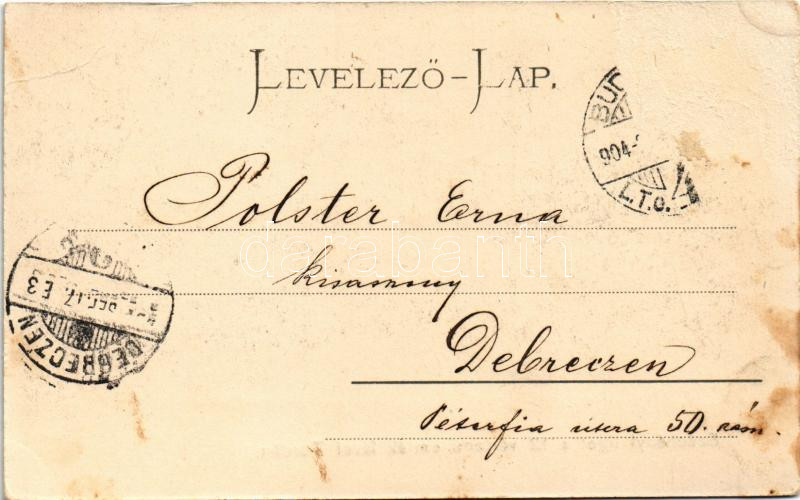 LEVELEZŐ-LAP.
BUD
904
L.T.C.
Polster Erna
kisasszony
Debreczen
Péterfia utcza 50. szám.
DEBRECZEN
DEC. 17. E3
darabanth